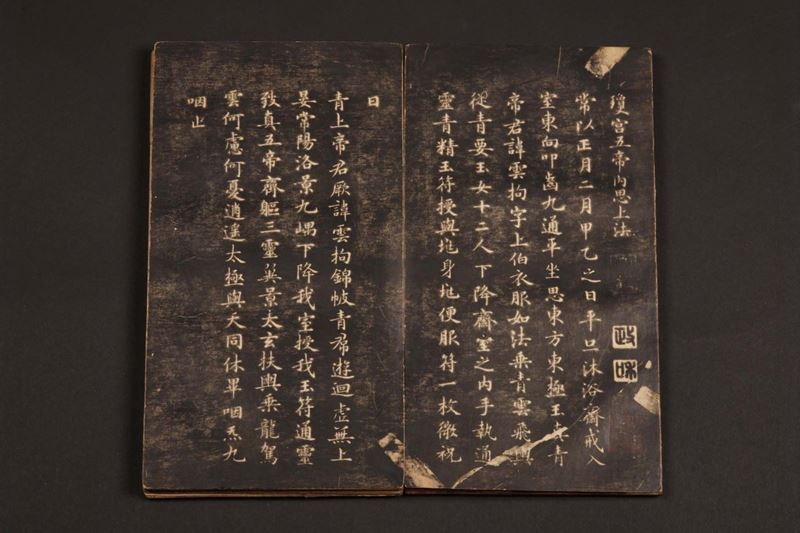 瓊宮五帝內思上法
常以正月二月甲乙之日平旦沐浴齋戒入
室東向叩齒九通平坐思東方東極玉真青
帝君諱雲拘字上伯衣服如法乘青雲飛輿
從青要玉女十二人下降齋室之內手執通
靈青精玉符授與兆身兆便服符一枚微祝
曰
青上帝君厥諱雲拘錦帔青帬遊迴虛無上
晏常陽洛景九嵎下降我室授我玉符通靈
致真五帝齊軀三靈翼景太玄扶輿乘龍駕
雲何慮何憂逍遙太極與天同休畢咽炁九
咽止
政
和